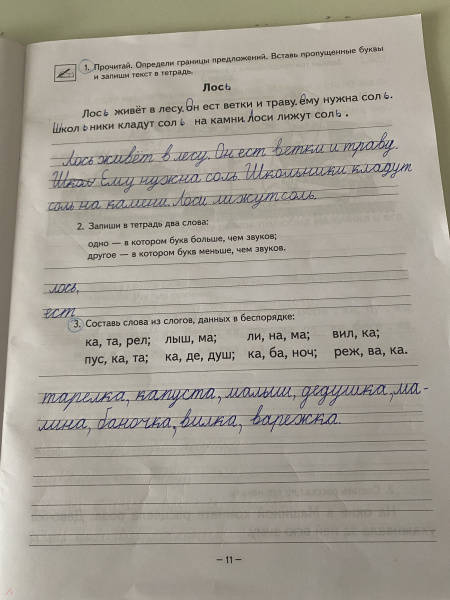 1. Прочитай. Определи границы предложений. Вставь пропущенные буквы
и запиши текст в тетрадь.
Лось
Лось живёт в лесу. Он ест ветки и траву. Ему нужна соль.
Школьники кладут соль на камни. Лоси лижут соль.
Лось живёт в лесу. Он ест ветки и траву.
Школ Ему нужна соль. Школьники кладут
соль на камени. Лоси лижут соль.
2. Запиши в тетрадь два слова:
одно — в котором букв больше, чем звуков;
другое — в котором букв меньше, чем звуков.
лось,
ест
3. Составь слова из слогов, данных в беспорядке:
ка, та, рел; лыш, ма; ли, на, ма; вил, ка;
пус, ка, та; ка, де, душ; ка, ба, ноч; реж, ва, ка.
тарелка, капуста, малыш, дедушка, ма-
лина, баночка, вилка, варежка.
– 11 –